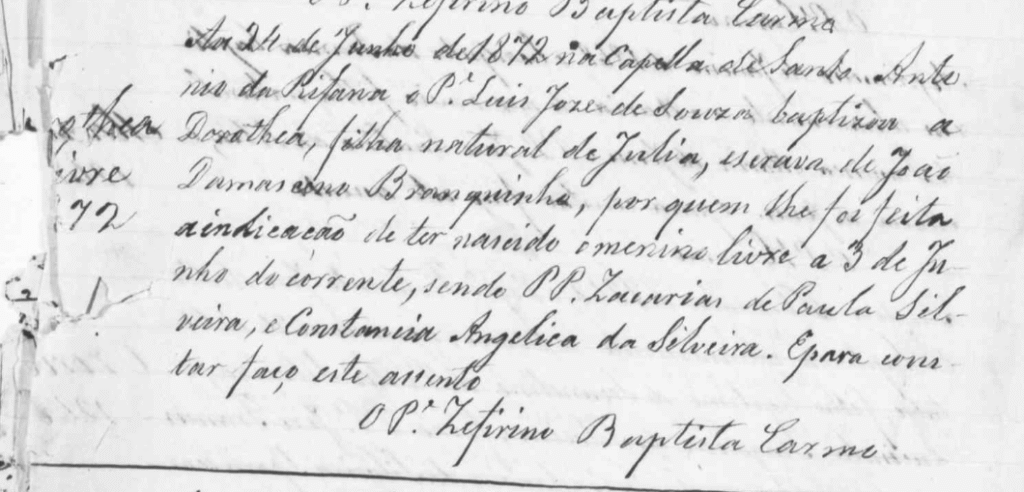 O P.e Zefirino Baptista Carmo
Aa 24 de Junho de 1872 na Capella de Santo Anto
nio da Rifana o P.e Luis Joze de Souza baptizou a
Dorathea, filha natural de Julia, escrava de João
Damasceno Branquinho, por quem lhe foi feita
a indicacão de ter nascido o menino livre a 3 de Ju-
nho do corrente, sendo PP. Zacarias de Paula Sil-
veira, e Constancia Angelica da Silveira. E para cons
tar faço este assento
O P.e Zefirino Baptista Carmo
othea
ivre
72